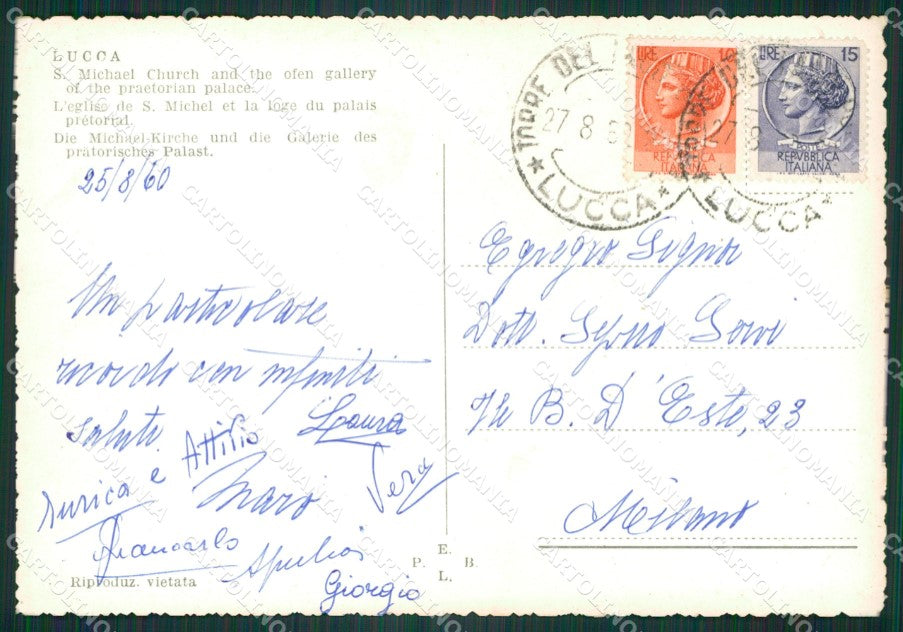 LUCCA
S. Michael Church and the ofen gallery
of the praetorian palace.
L'eglise de S. Michel et la loge du palais
prétorial.
Die Michael-Kirche und die Galerie des
pratorisches Palast.
25/8/60
Un particolare
ricordo con infiniti
saluti
Laura
e Attilio
Vera
Mario
Giancarlo
Giorgio
Riproduz. vietata
E.
P. B.
L.
TORRE DEL
27 8 60
LUCCA
LIRE 10
REPVBBLICA
ITALIANA
LIRE 15
POSTE
REPVBBLICA
ITALIANA
27 8
LUCCA
Egregio Signor
Dott.
Vle B. D'Este, 23
Milano
CARTOLINOMANIA